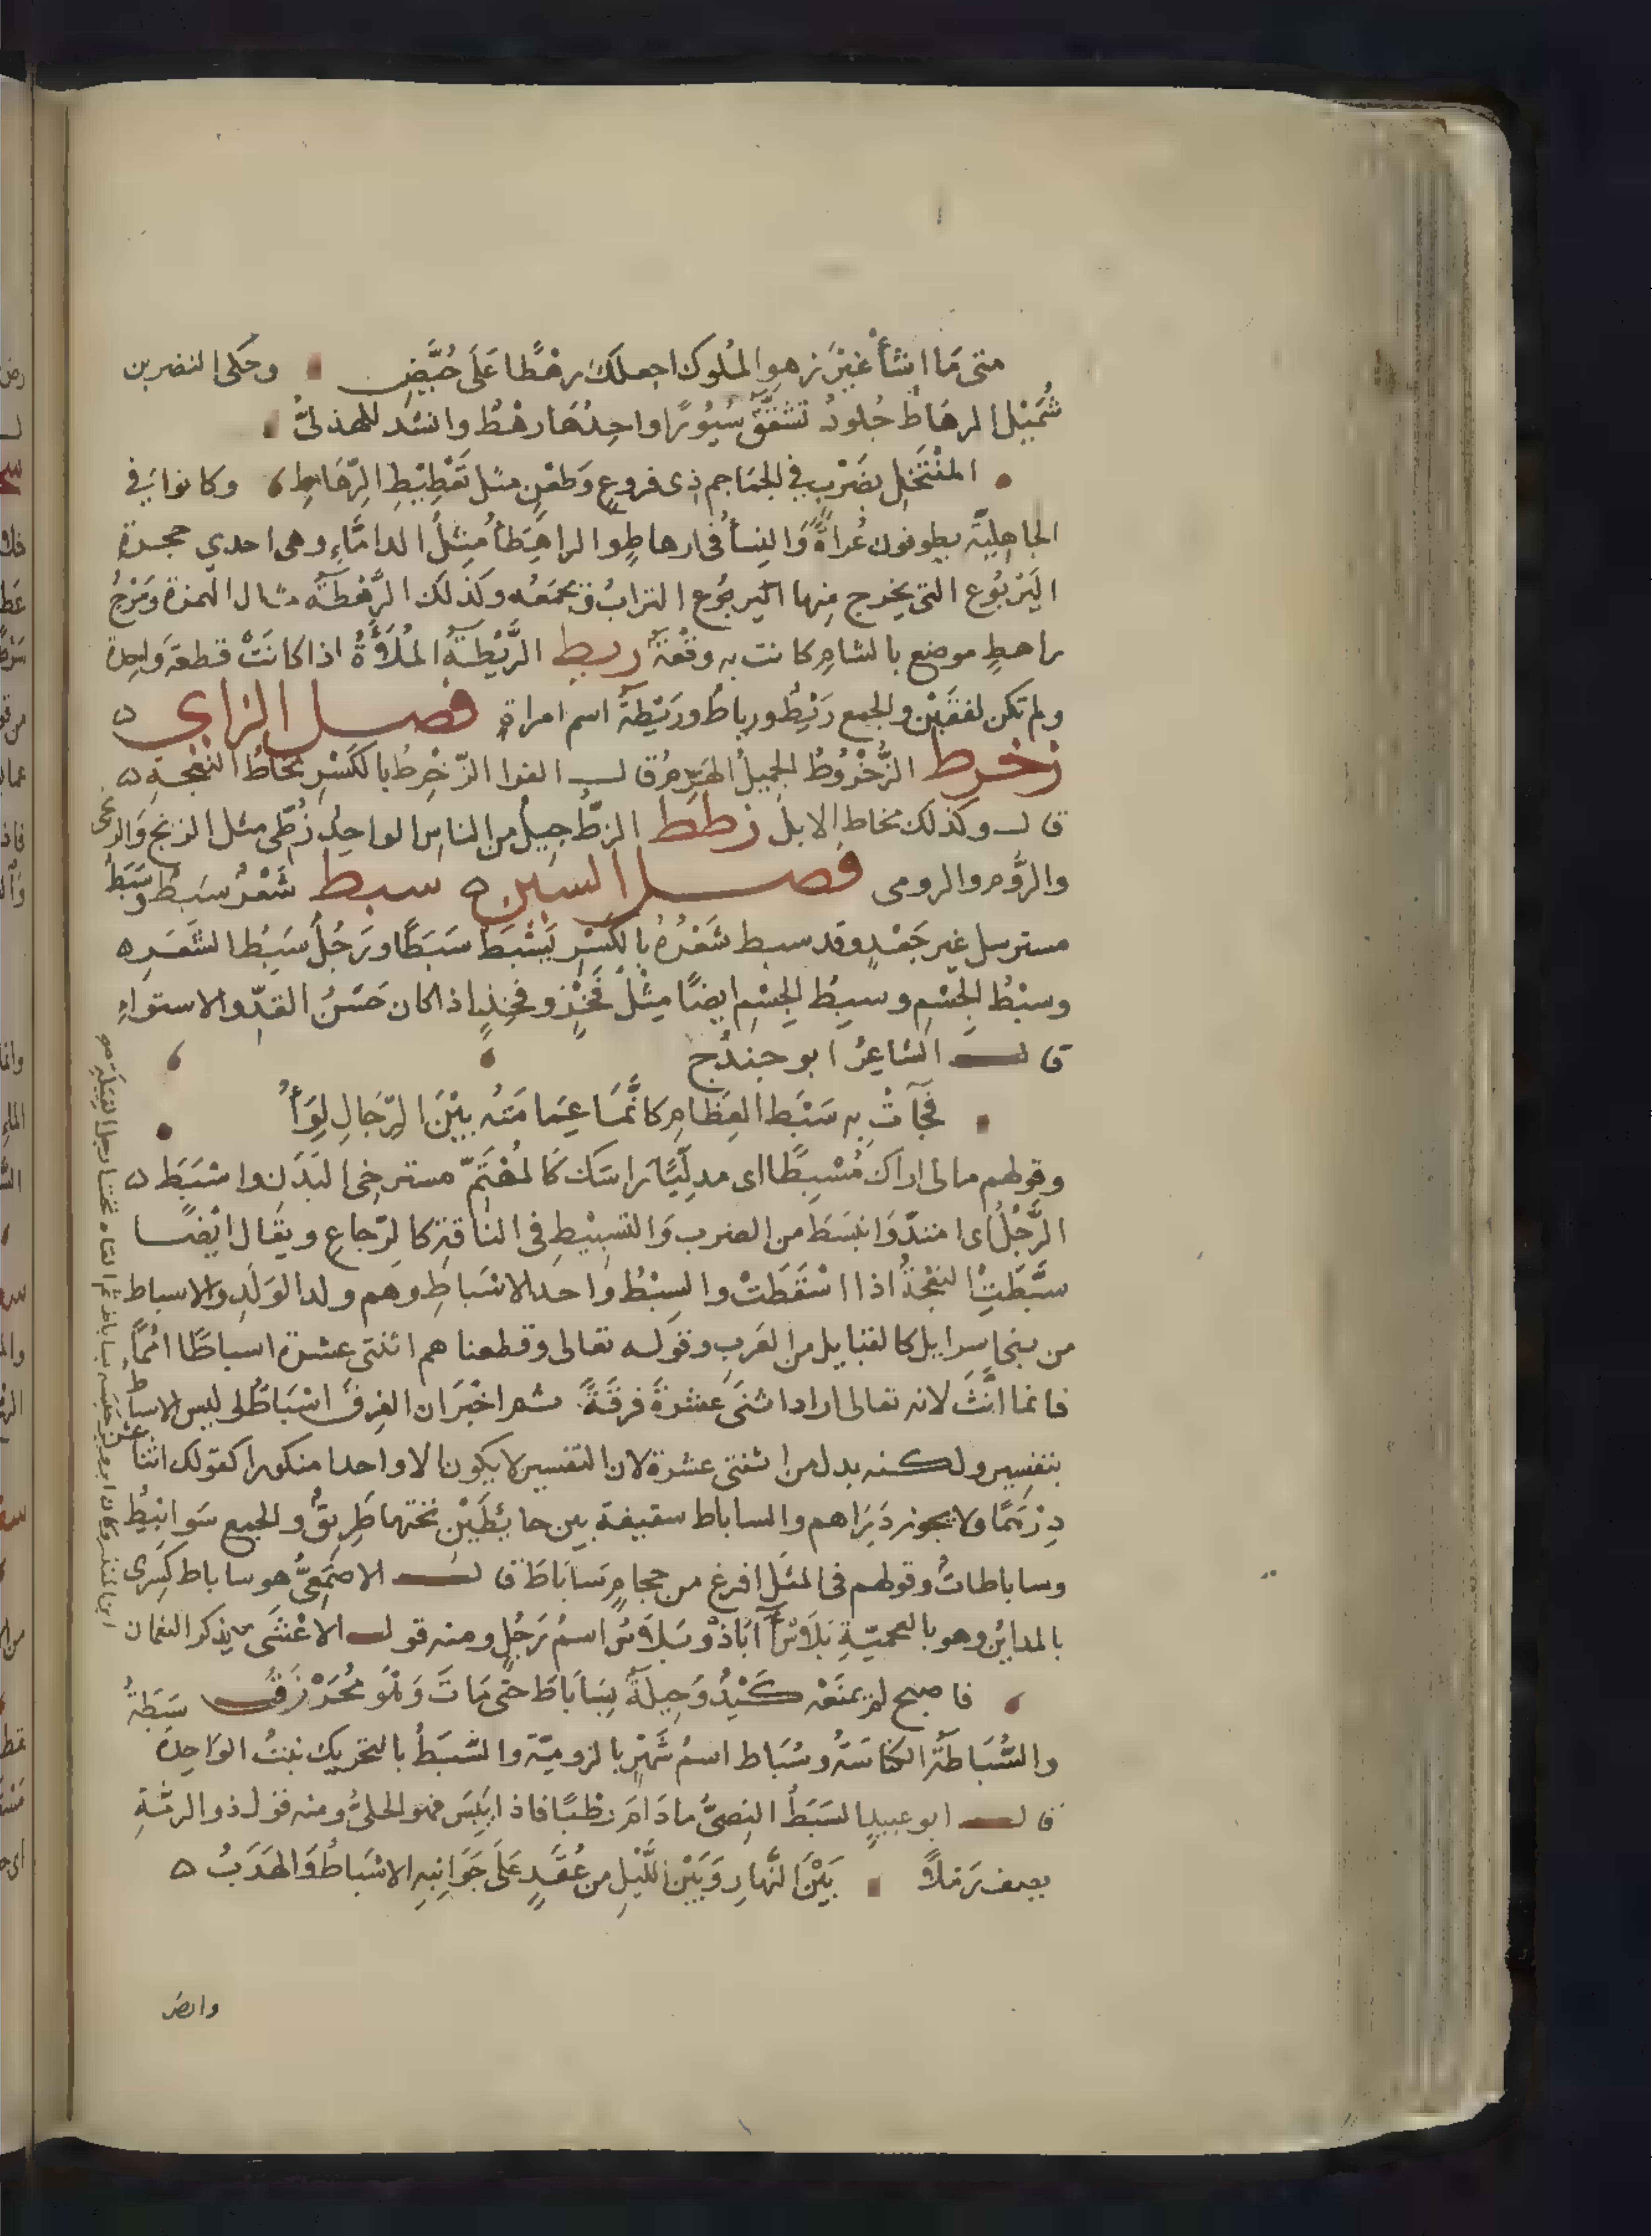 متى ما انشأ غير زهو الملوك اجعلك رهطا على حُيَّضِ وحكى النضر بن
شُمَيْل الرهاط جلودٌ تشقق سيورًا واحدها رهط وانشد للهذلى
المنتخل بضَرْب فى الجماجم ذى فروغ وطعن مثل تعطيط الرهاط وكانوا فى
الجاهلية يطوفون عراة والنسأ فى ارهاط والراهِطأ مثل الداماء وهى احدي حجرة
اليَرْبُوع التى يخرج منها اليربوع التراب ويجمعه وكذلك الرهطة مثال الهمزة ومرج
راهط موضع بالشام كانت به وقعة ريط الرَّيْطة المُلاَءَةُ اذا كانَتْ قطعة واحدة
ولم تكن لفقَيْن والجمع رَيْطٌ ورياط ورَيْطة اسم امراة فصل الزاى
زخرط الزُّخْرُوطُ الجمل الهَرِم قال الفرا الزِّخْرِطُ بالكَسْرِ مخاط النعجة
قال وكذلك مخاط الابل زطط الزط جيل من الناس الواحد زُطّى مثل الزنج والزنجى
والرُّوم والرومى فصل السين سبط شَعْرٌ سَبِطٌ وسَبَطٌ
مسترسل غير جَعْدٍ وقد سبط شَعْرُهُ بالكسْرِ يَسْبَطُ سَبَطًا ورَجُلٌ سَبِطُ الشَّعَرِ
وسَبْطُ الجِسْمِ وسبِطُ الجِسْم ايضًا مِثْلُ فَخْذٍ وفَخِذٍ اذا كان حَسَنَ القَدّ والاستواءِ
قال الشاعرُ ابو جندُج
فَجآتْ به سَبْطَ العِظَامِ كانَّمَا عِمَامَتُه بَيْنَ الرّجَالِ لِوَأُ
وقولهم مالى اراك مُسْبِطًا اى مدلّيًا راسَك كالمُهْتَمّ مسترخى البَدَن واسْبَطَ
الرَّجُلُ اى امتدّ وانبسَطَ من الضرب والتسبيط فى الناقة كالرّجاع ويقال ايضا
سَبَّطَتِ النعجةُ اذا اسْقَطَتْ والسِبْطُ واحد الاسْباطِ وهم ولد الوَلَدِ والاسباط
من بنى اسرايل كالقبايل من العَربِ وقوله تعالى وقطعناهم اثنتى عشرة اسباطًا اممًا
فانما انَّثَ لانه تعالى اراد اثنتى عشرةَ فرقةً ثم اخْبَرَ ان الفِرقَ اسْبَاطٌ وليس الاسباط
بتفسير ولكنه بدل من اثنتى عشرة لان التفسير لا يكون الا واحدا منكورا كقولك اثنا عشر
دِرْهَمًا ولا يجوز دَرَاهم والساباط سقيفة بين حائِطَيْنِ تحتها طَرِيقٌ والجمع سَوَابيطُ
وساباطاتٌ وقولهم فى المثل افرغ من حجام سَابَاطَ قال الاصْمَعِىُّ هو ساباط كِسْرى
بالمداين وهو بالعجميّةِ بَلَاس اَبَاذ وبَلَاسُ اسمُ رَجُلٍ ومنه قول الاعْشَى يذكر النعمان
فاصبح لم يمنَعْه كَيْدٌ وَحِيلَةٌ بِسَابَاطَ حتى مَاتَ وَهْوَ مُحَرْزَقُ
والسُّبَاطَةُ الكناسَةُ وسُبَاط اسمُ شَهْرٍ بالرومية والسَّبَطُ بالتحريك نبتٌ الواحِدة سَبَطَةٌ
قال ابو عبيدٍ السَبَطُ النِصىُّ مادَامَ رَطْبًا فاذا يَبِسَ فهو الحلىُّ ومنه قول ذو الرمّةِ
يصف رَمْلاً بَيْنَ النَّهارِ وَبَيْنَ اللَّيْلِ من عُقَدٍ عَلَى جَوَانِبِهِ الاسْبَاطُ وَالهَدَبُ
وارض